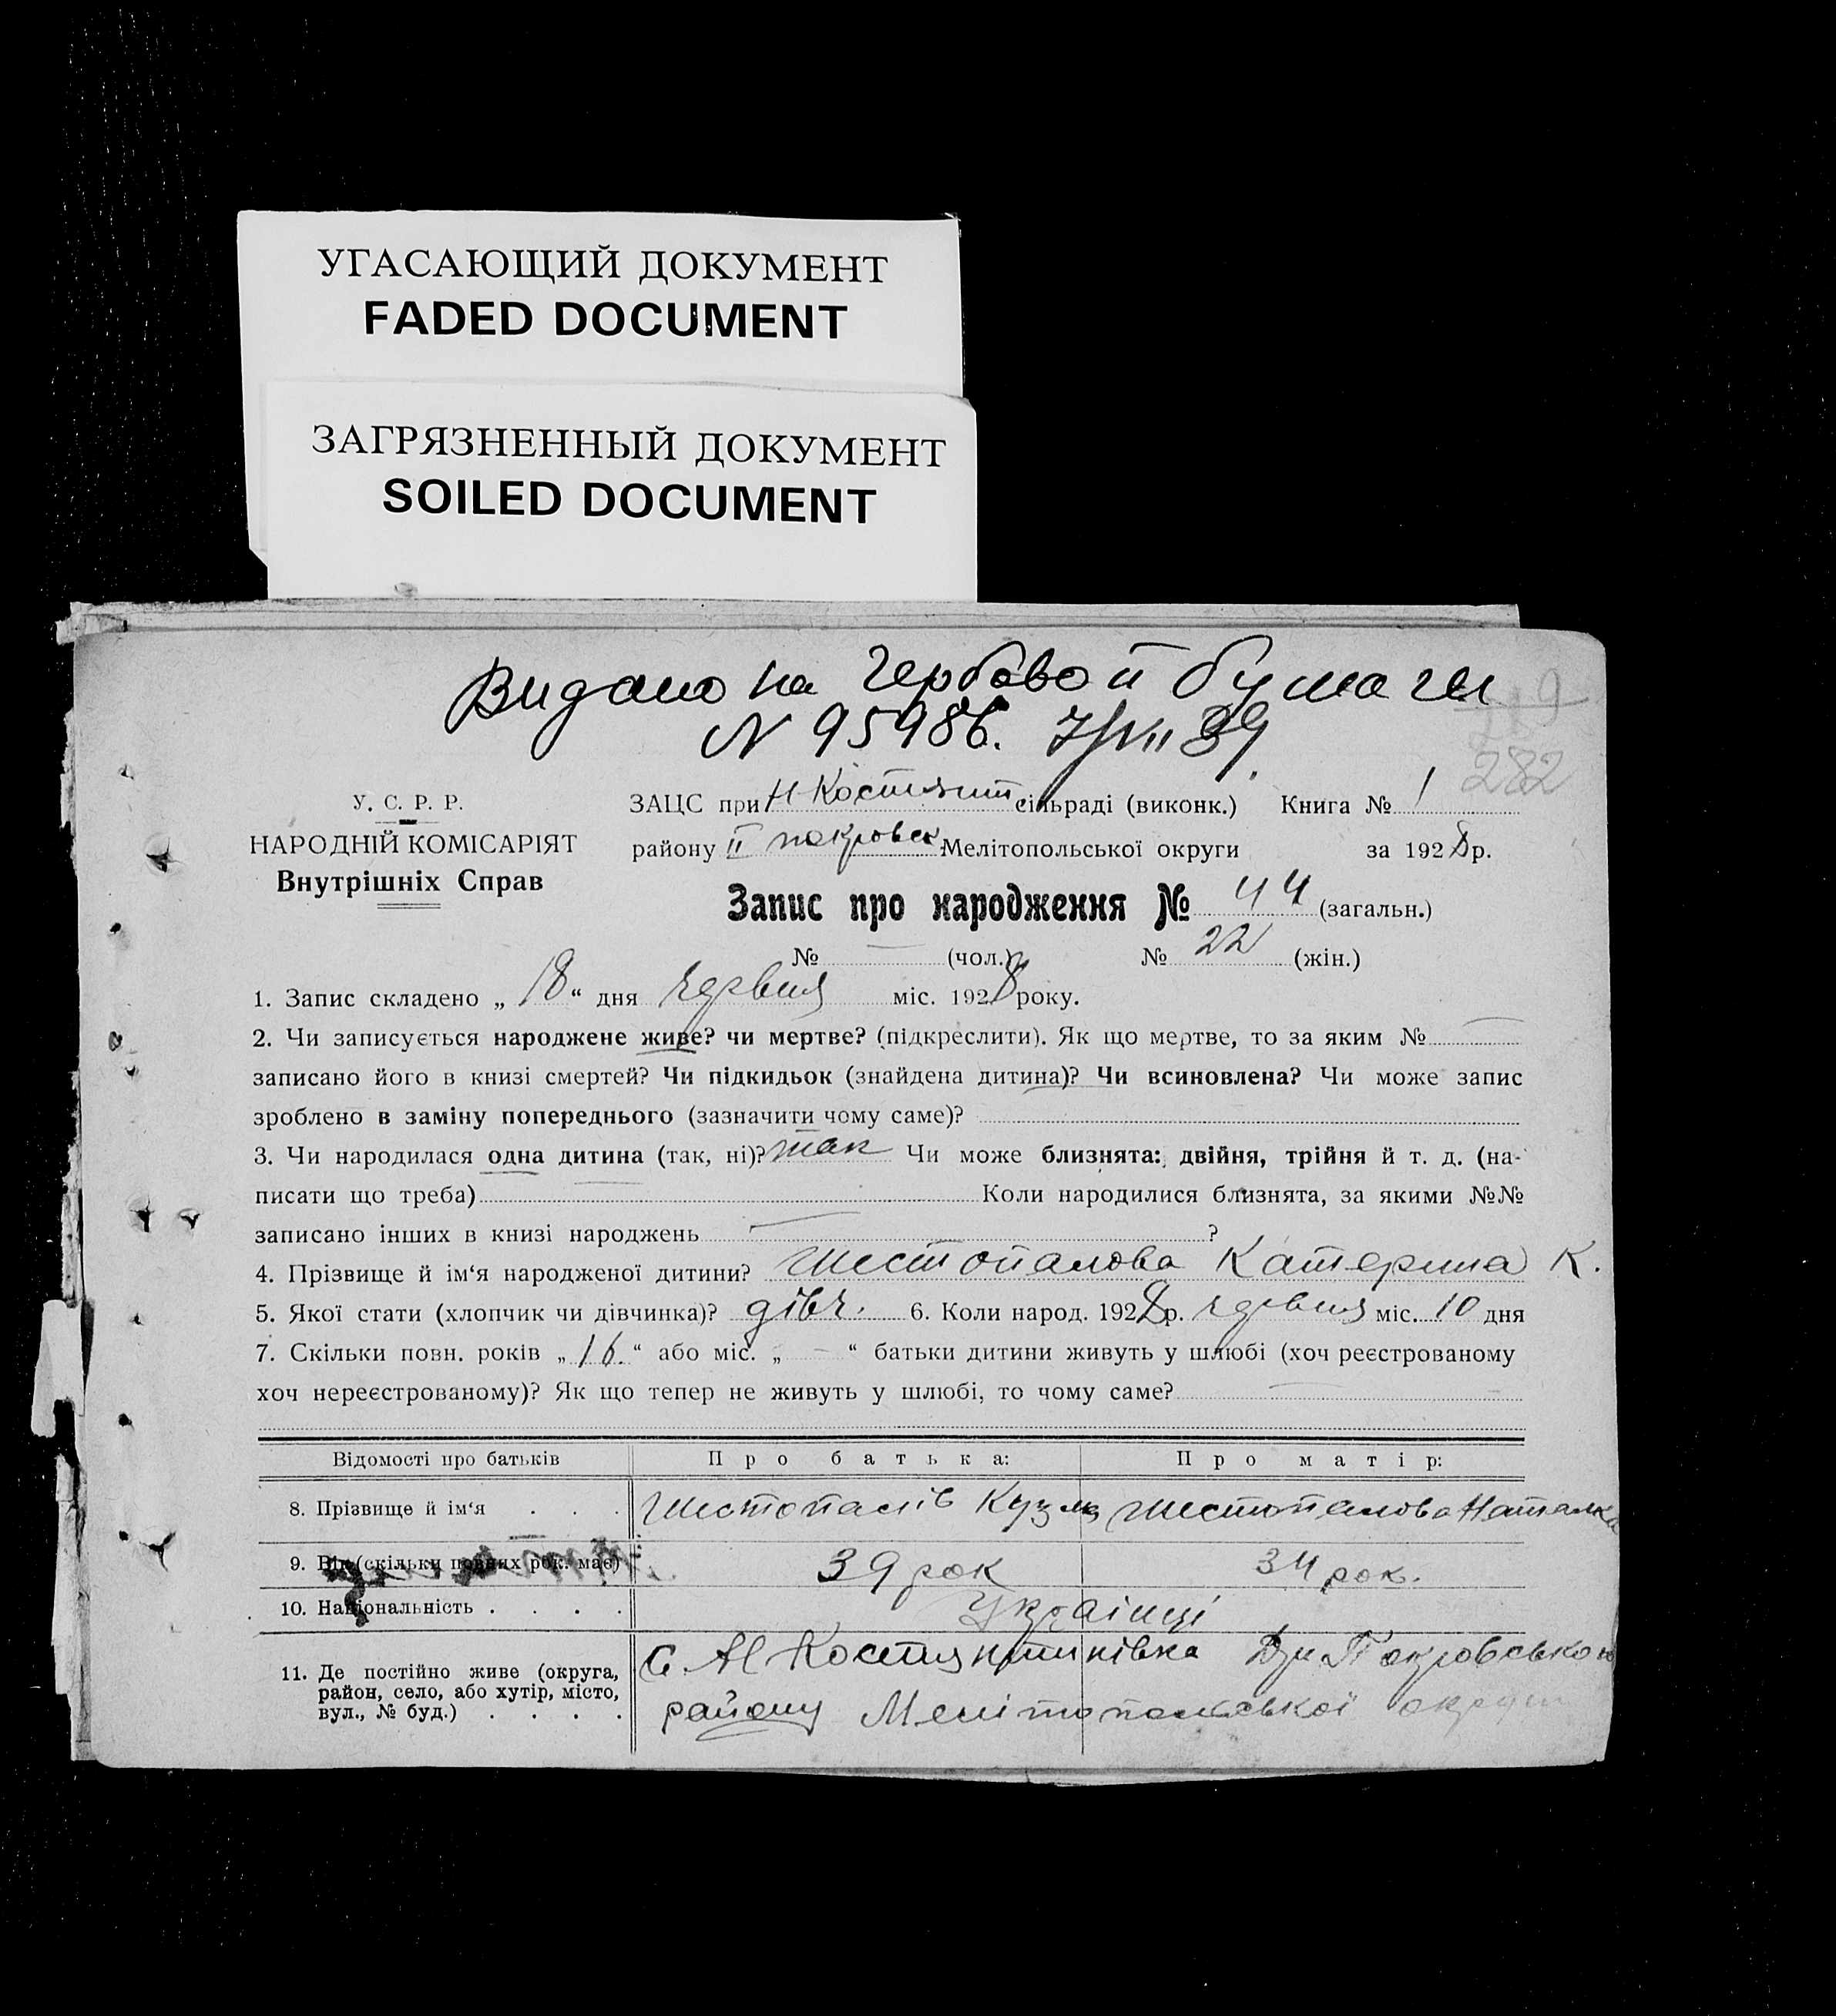 УГАСАЮЩИЙ ДОКУМЕНТ
FADED DOCUMENT
ЗАГРЯЗНЕННЫЙ ДОКУМЕНТ
SOILED DOCUMENT
Видано на Гербовой бумаги
N 95986. 39
282
У. С. Р. Р.
НАРОДНІЙ КОМІСАРІЯТ
Внутрішніх Справ
ЗАЦС при Н Костянт сільраді (виконк.) Книга № 1
району II покровськ Мелітопольської округи за 1928 р.
Запис про народження № 44 (загальн.)
№ — (чол.) № 22 (жін.)
1. Запис складено „ 18 “ дня червня міс. 1928 року.
2. Чи записується народжене живе? чи мертве? (підкреслити). Як що мертве, то за яким № —
записано його в книзі смертей? Чи підкидьок (знайдена дитина)? Чи всиновлена? Чи може запис
зроблено в заміну попереднього (зазначити чому саме)?
3. Чи народилася одна дитина (так, ні)? так Чи може близнята: двійня, трійня й т. д. (на-
писати що треба) Коли народилися близнята, за якими №№
записано інших в книзі народжень — ?
4. Прізвище й ім‘я народженої дитини? Шестопалова Катерина К.
5. Якої стати (хлопчик чи дівчинка)? дівч. 6. Коли народ. 1928 р. червня міс. 10 дня
7. Скільки повн. років „ 16. “ або міс. „ — “ батьки дитини живуть у шлюбі (хоч реєстрованому
хоч нереєстрованому)? Як що тепер не живуть у шлюбі, то чому саме? —
Відомості про батьків Про батька: Про матір:
8. Прізвище й ім‘я . . . Шестопалів Кузма Шестопалова Наталка
9. Вік (скільки повних рок. має) 39 рок 34 рок.
10. Національність . . . . Українці
11. Де постійно живе (округа, район, село, або хутір, місто, вул., № буд.) . . . . С. Н Костянтинівка Др Покровського
району Мелітопольської округи